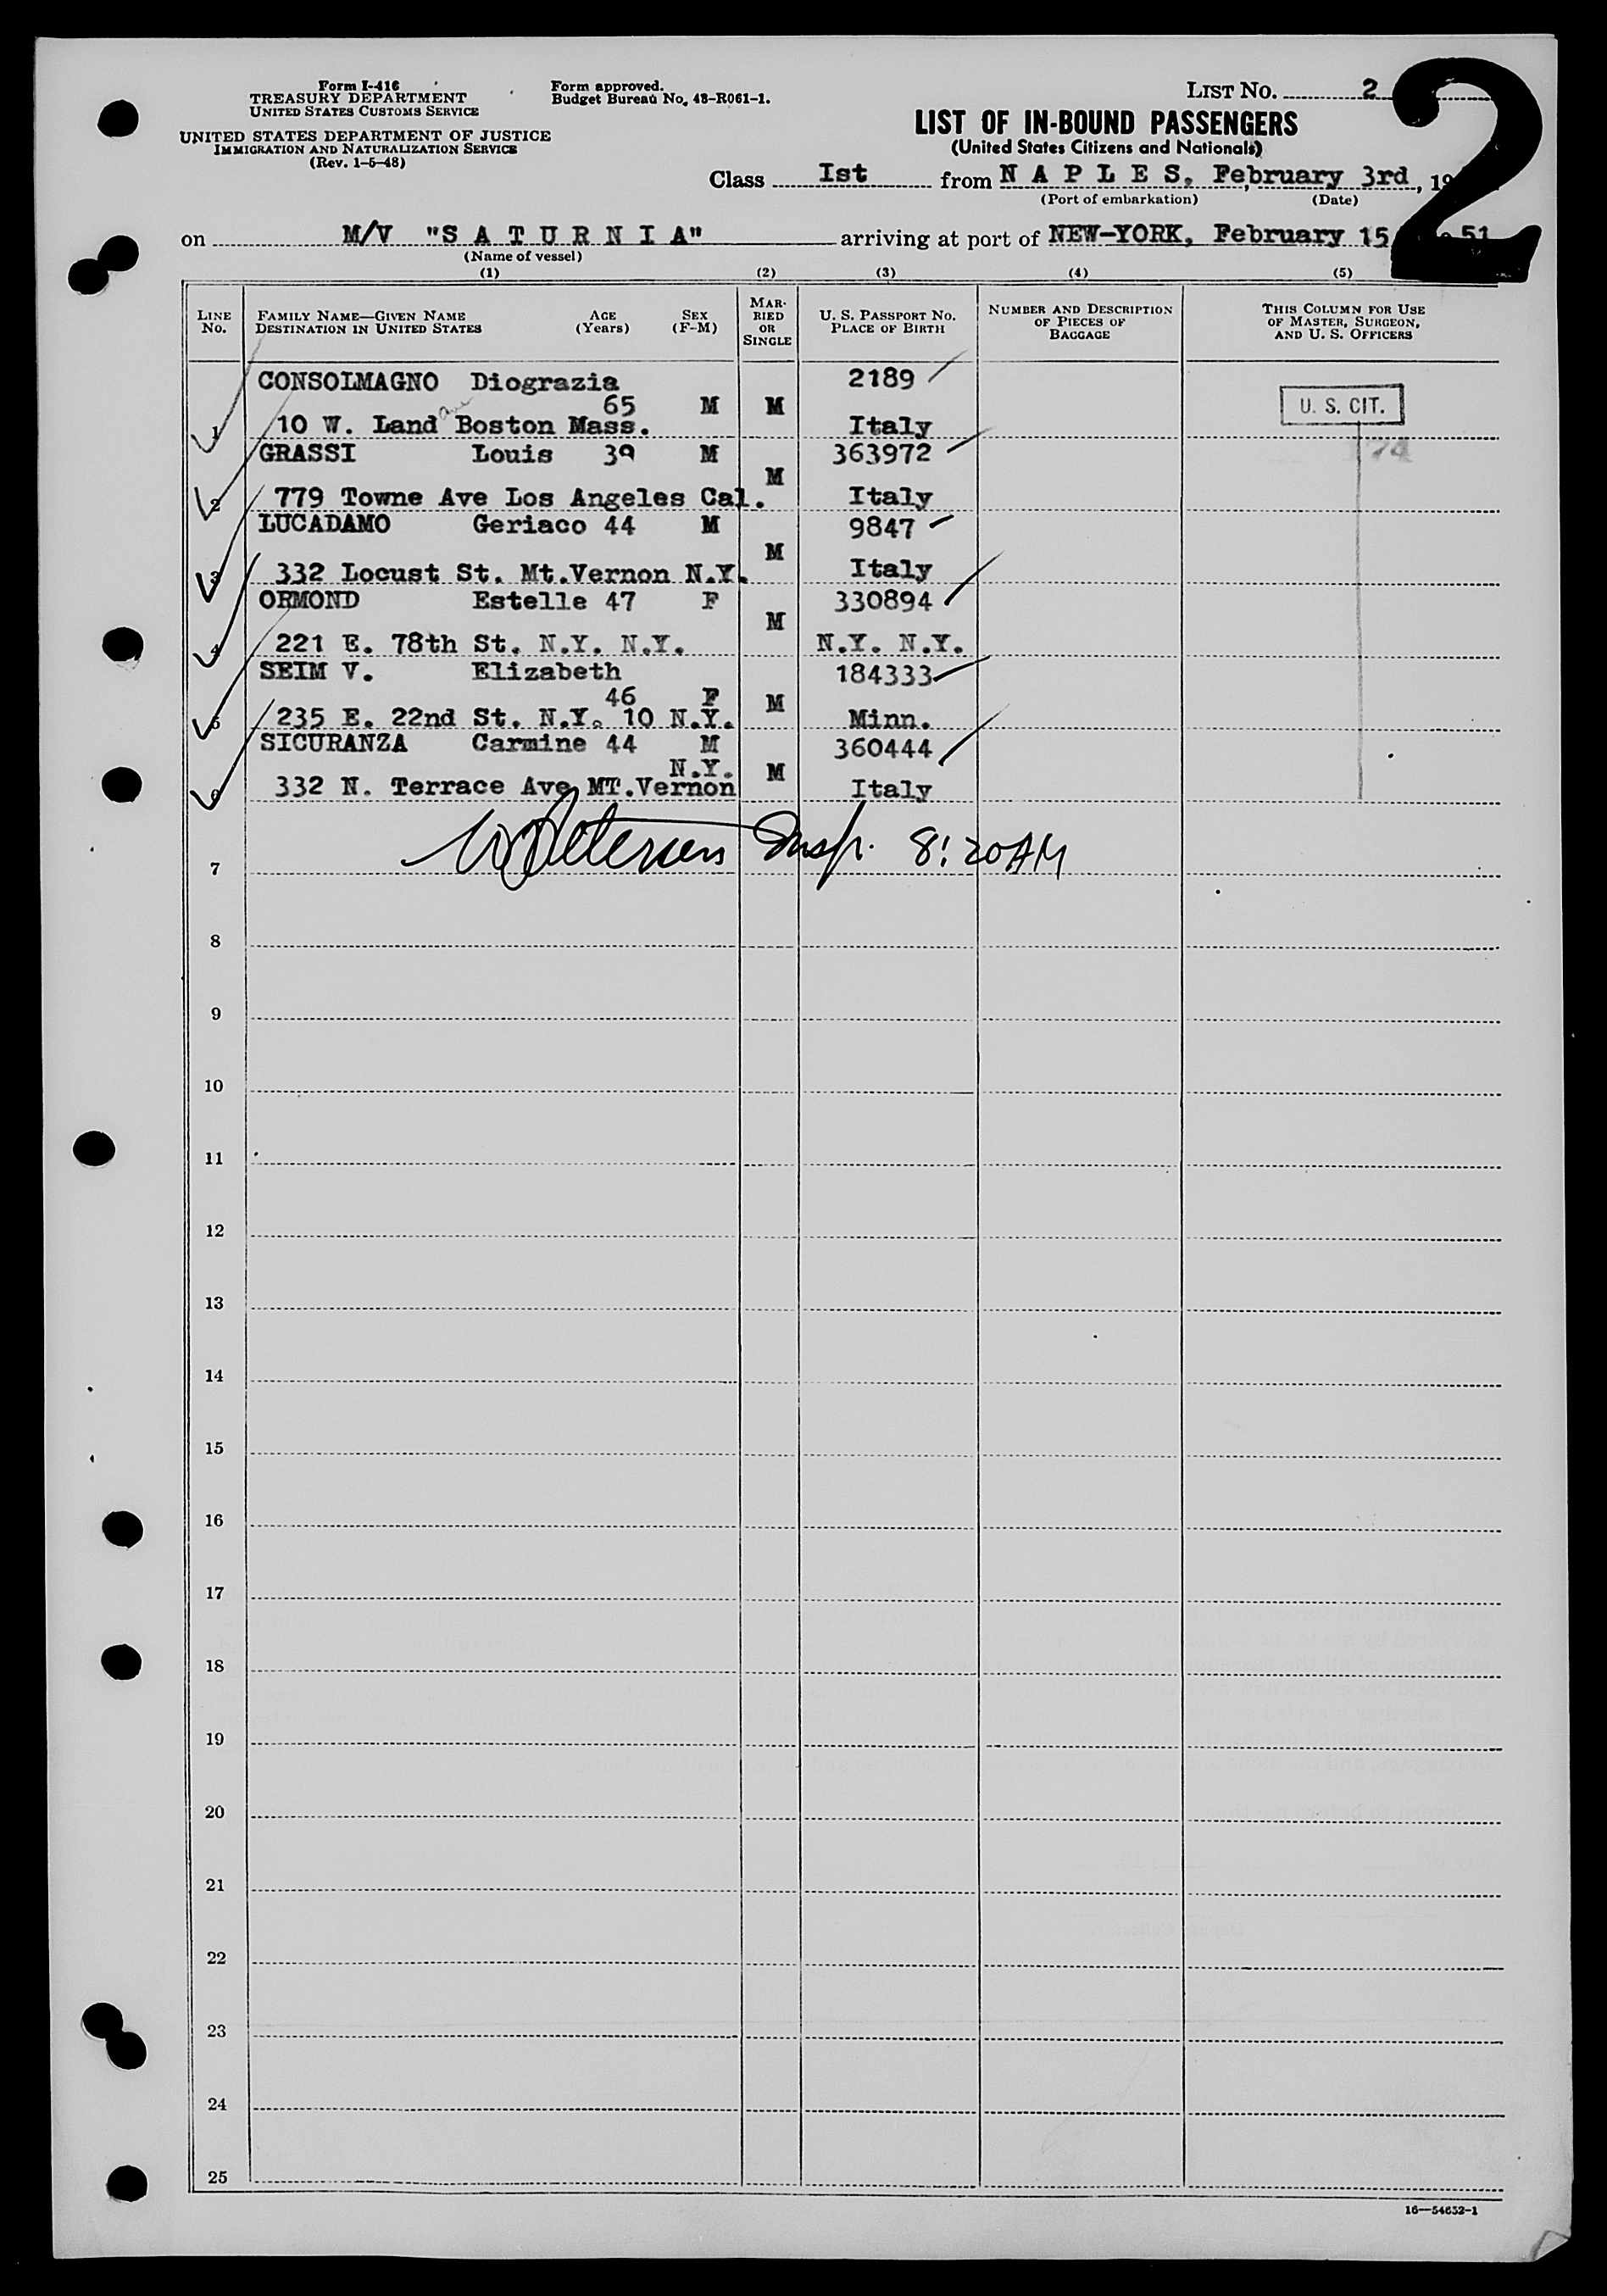 Form I-416
TREASURY DEPARTMENT
UNITED STATES CUSTOMS SERVICE
UNITED STATES DEPARTMENT OF JUSTICE
IMMIGRATION AND NATURALIZATION SERVICE
(Rev. 1-5-48)
Form approved.
Budget Bureau No. 43-R061-1.
LIST NO. 2
2
LIST OF IN-BOUND PASSENGERS
(United States Citizens and Nationals)
Class Ist from N A P L E S, February 3rd, 19
(Port of embarkation) (Date)
on M/V "S A T U R N I A" arriving at port of NEW-YORK, February 15 51
(Name of vessel)
(1) (2) (3) (4) (5)
LINE No.
FAMILY NAME—GIVEN NAME AGE (Years) SEX (F-M)
DESTINATION IN UNITED STATES
MARRIED OR SINGLE
U. S. PASSPORT NO.
PLACE OF BIRTH
NUMBER AND DESCRIPTION OF PIECES OF BAGGAGE
THIS COLUMN FOR USE OF MASTER, SURGEON, AND U. S. OFFICERS
CONSOLMAGNO Diograzia 2189
65 M M U. S. CIT.
1 10 W. Land ave Boston Mass. Italy
GRASSI Louis 39 M 363972
M
2 779 Towne Ave Los Angeles Cal. Italy
LUCADAMO Geriaco 44 M 9847
M
3 332 Locust St. Mt.Vernon N.Y. Italy
ORMOND Estelle 47 F 330894
M
4 221 E. 78th St. N.Y. N.Y. N.Y. N.Y.
SEIM V. Elizabeth 184333
46 F M
5 235 E. 22nd St. N.Y. 10 N.Y. Minn.
SICURANZA Carmine 44 M 360444
N.Y. M
6 332 N. Terrace Ave MT.Vernon Italy
Petersen Insp. 8:20AM
7
8
9
10
11
12
13
14
15
16
17
18
19
20
21
22
23
24
25
16—54652-1